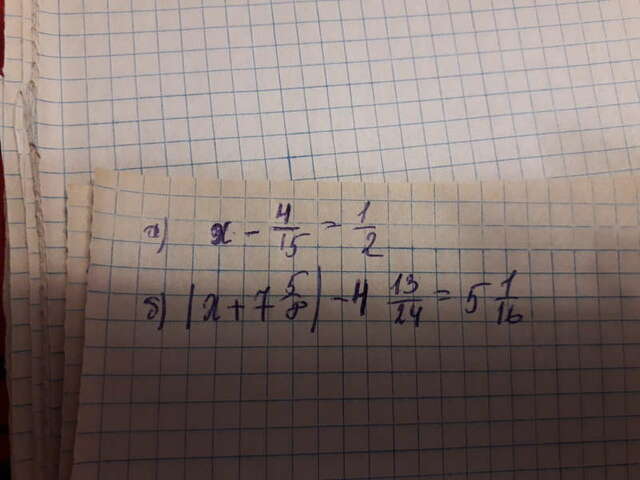 а) x - 4/15 = 1/2
б) (x + 7 5/8) - 4 13/24 = 5 1/16